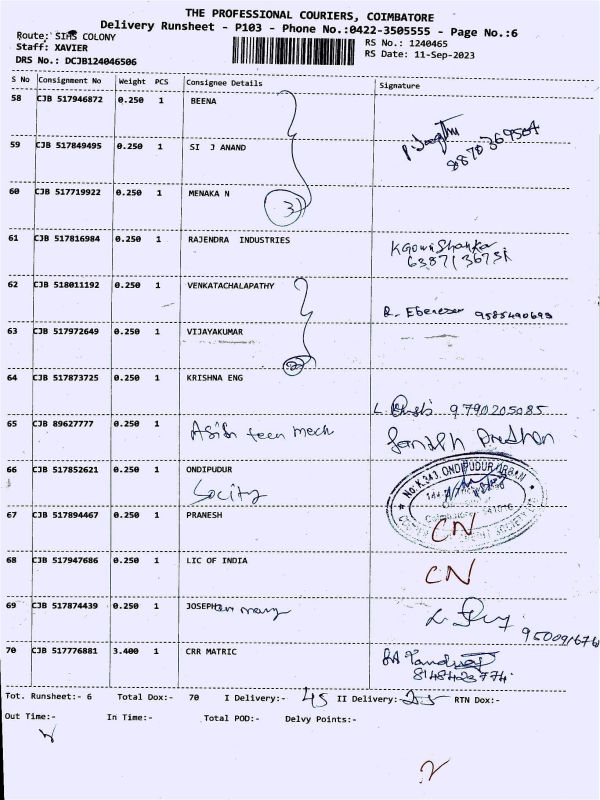 THE PROFESSIONAL COURIERS, COIMBATORE
Delivery Runsheet - P103 - Phone No.:0422-3505555 - Page No.:6
Route: SIHS COLONY
RS No.: 1240465
Staff: XAVIER
RS Date: 11-Sep-2023
DRS No.: DCJB124046506
S No Consignment No Weight PCS Consignee Details Signature
58 CJB 517946872 0.250 1 BEENA
59 CJB 517849495 0.250 1 SI J ANAND
60 CJB 517719922 0.250 1 MENAKA N
3
61 CJB 517816984 0.250 1 RAJENDRA INDUSTRIES
62 CJB 518011192 0.250 1 VENKATACHALAPATHY
R. Ebenezer
63 CJB 517972649 0.250 1 VIJAYAKUMAR
2
64 CJB 517873725 0.250 1 KRISHNA ENG
9790205085
65 CJB 89627777 0.250 1
66 CJB 517852621 0.250 1 ONDIPUDUR
Socity
No.K.343, ONDIPUDUR URBAN
67 CJB 517894467 0.250 1 PRANESH
CN
68 CJB 517947686 0.250 1 LIC OF INDIA
CN
69 CJB 517874439 0.250 1 JOSEPH
70 CJB 517776881 3.400 1 CRR MATRIC
8148423774
Tot. Runsheet:- 6 Total Dox:- 70 I Delivery:- 45 II Delivery:- 25 RTN Dox:-
Out Time:- In Time:- Total POD:- Delvy Points:-